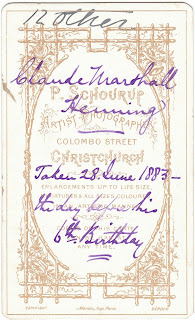 12 other
Claude Marshall
P. SCHOURUP
Henning
ARTIST PHOTOGRAPHER
COLOMBO STREET
CHRISTCHURCH
Taken 28 June 1883 –
ENLARGEMENTS UP TO LIFE SIZE
the day before his
6th Birthday
ANY TIME